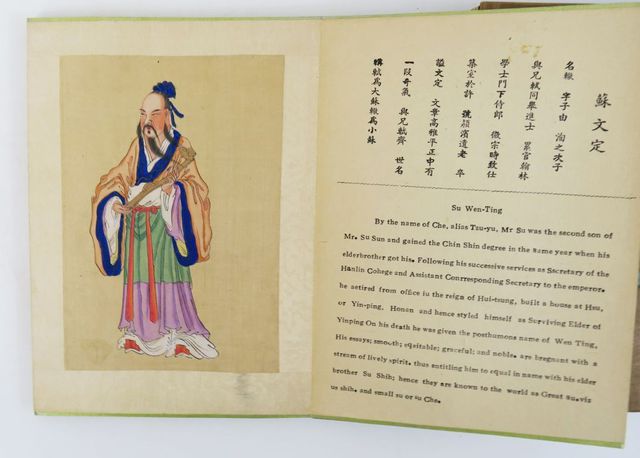 蘇文定
名轍 字子由 洵之次子
與兄軾同舉進士 累官翰林
學士門下侍郎 徽宗時致仕
築室於許 號潁濱遺老 卒
謚文定 文章高雅平正中有
一段奇氣 與兄軾齊 世名
稱軾為大蘇轍為小蘇
Su Wen-Ting
By the name of Che, alias Tzu-yu, Mr Su was the second son of
Mr. Su Sun and gained the Chin Shin degree in the same year when his
elderbrother got his. Following his successive services as Secretary of the
Hanlin College and Assistant Conrresponding Secretary to the emperor.
he aetired from office iu the reign of Hui-tsung, built a house at Hsu,
or Yin-ping, Honan and hence styled himself as Surviving Elder of
Yinping On his death he was given the posthumons name of Wen Ting.
His essays; smooth; eqsitable; graceful; and noble. are bregnant with a
stream of lively spirit. thus antitling him to equal in name with his elder
brother Su Shih; hence they are known to the world as Great su.viz
us shih. and small su or su Che.